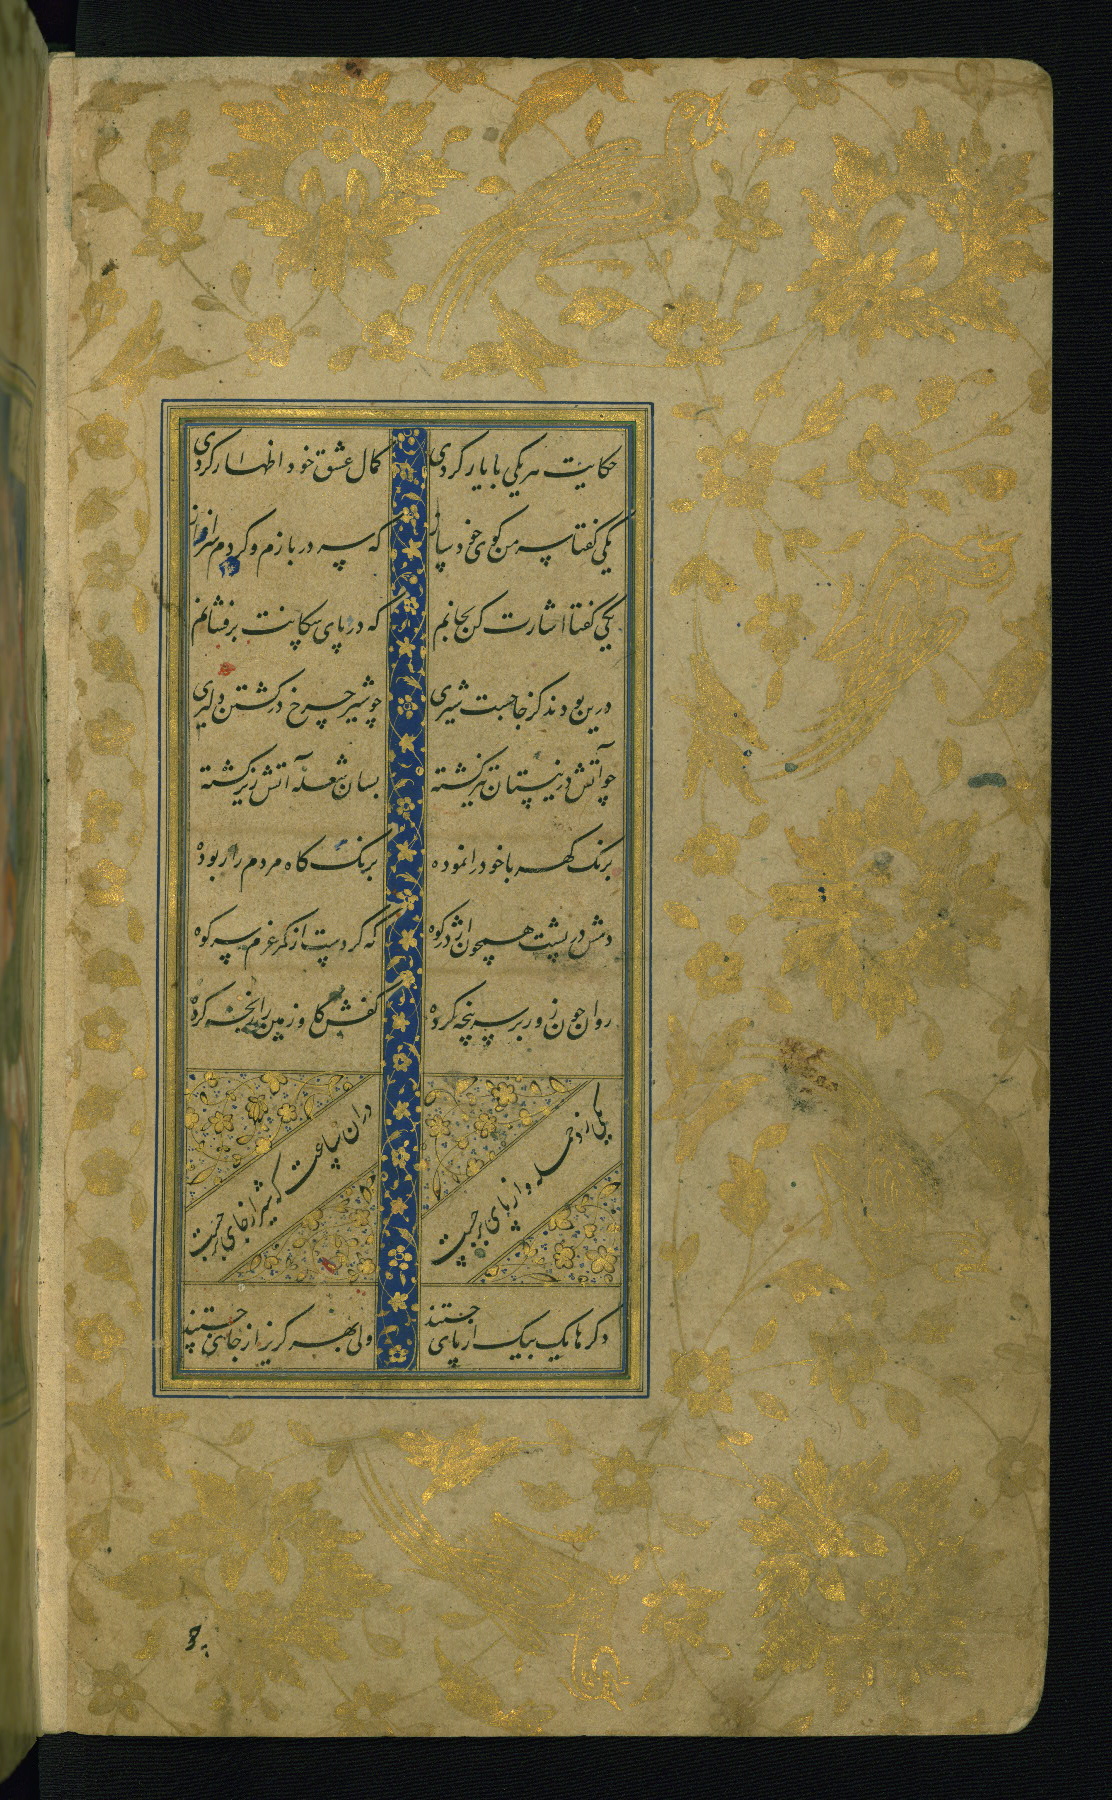 حکایت هر یکی با یار کردی کمال عشق خود اظهار کردی
یکی گفتا سر من گوی خود ساز که سر در بازم و کردم سرافراز
یکی گفتا اشارت کن بجانم که در پای سکانت برفشانم
درین بودند کز جا جست شیری چو شیر چرخ در کشتن دلیری
چو آتش در نیستان تیز کشته بسان شعله آتش ریز کشته
برنک کهربا خود را نموده برنک کاه مردم را ربوده
دمش در پشت همچون اژدر کوه که کردست از کمر عزم سر کوه
روان چون زور بر سر پنجه کرده کفش گاو زمین را رنجه کرده
یکی زد حمله و از پای برجست در آن ساعت که شیر از جای برجست
دکرها یک بیک از پای جستند ولی بهر کریز از جای جستند